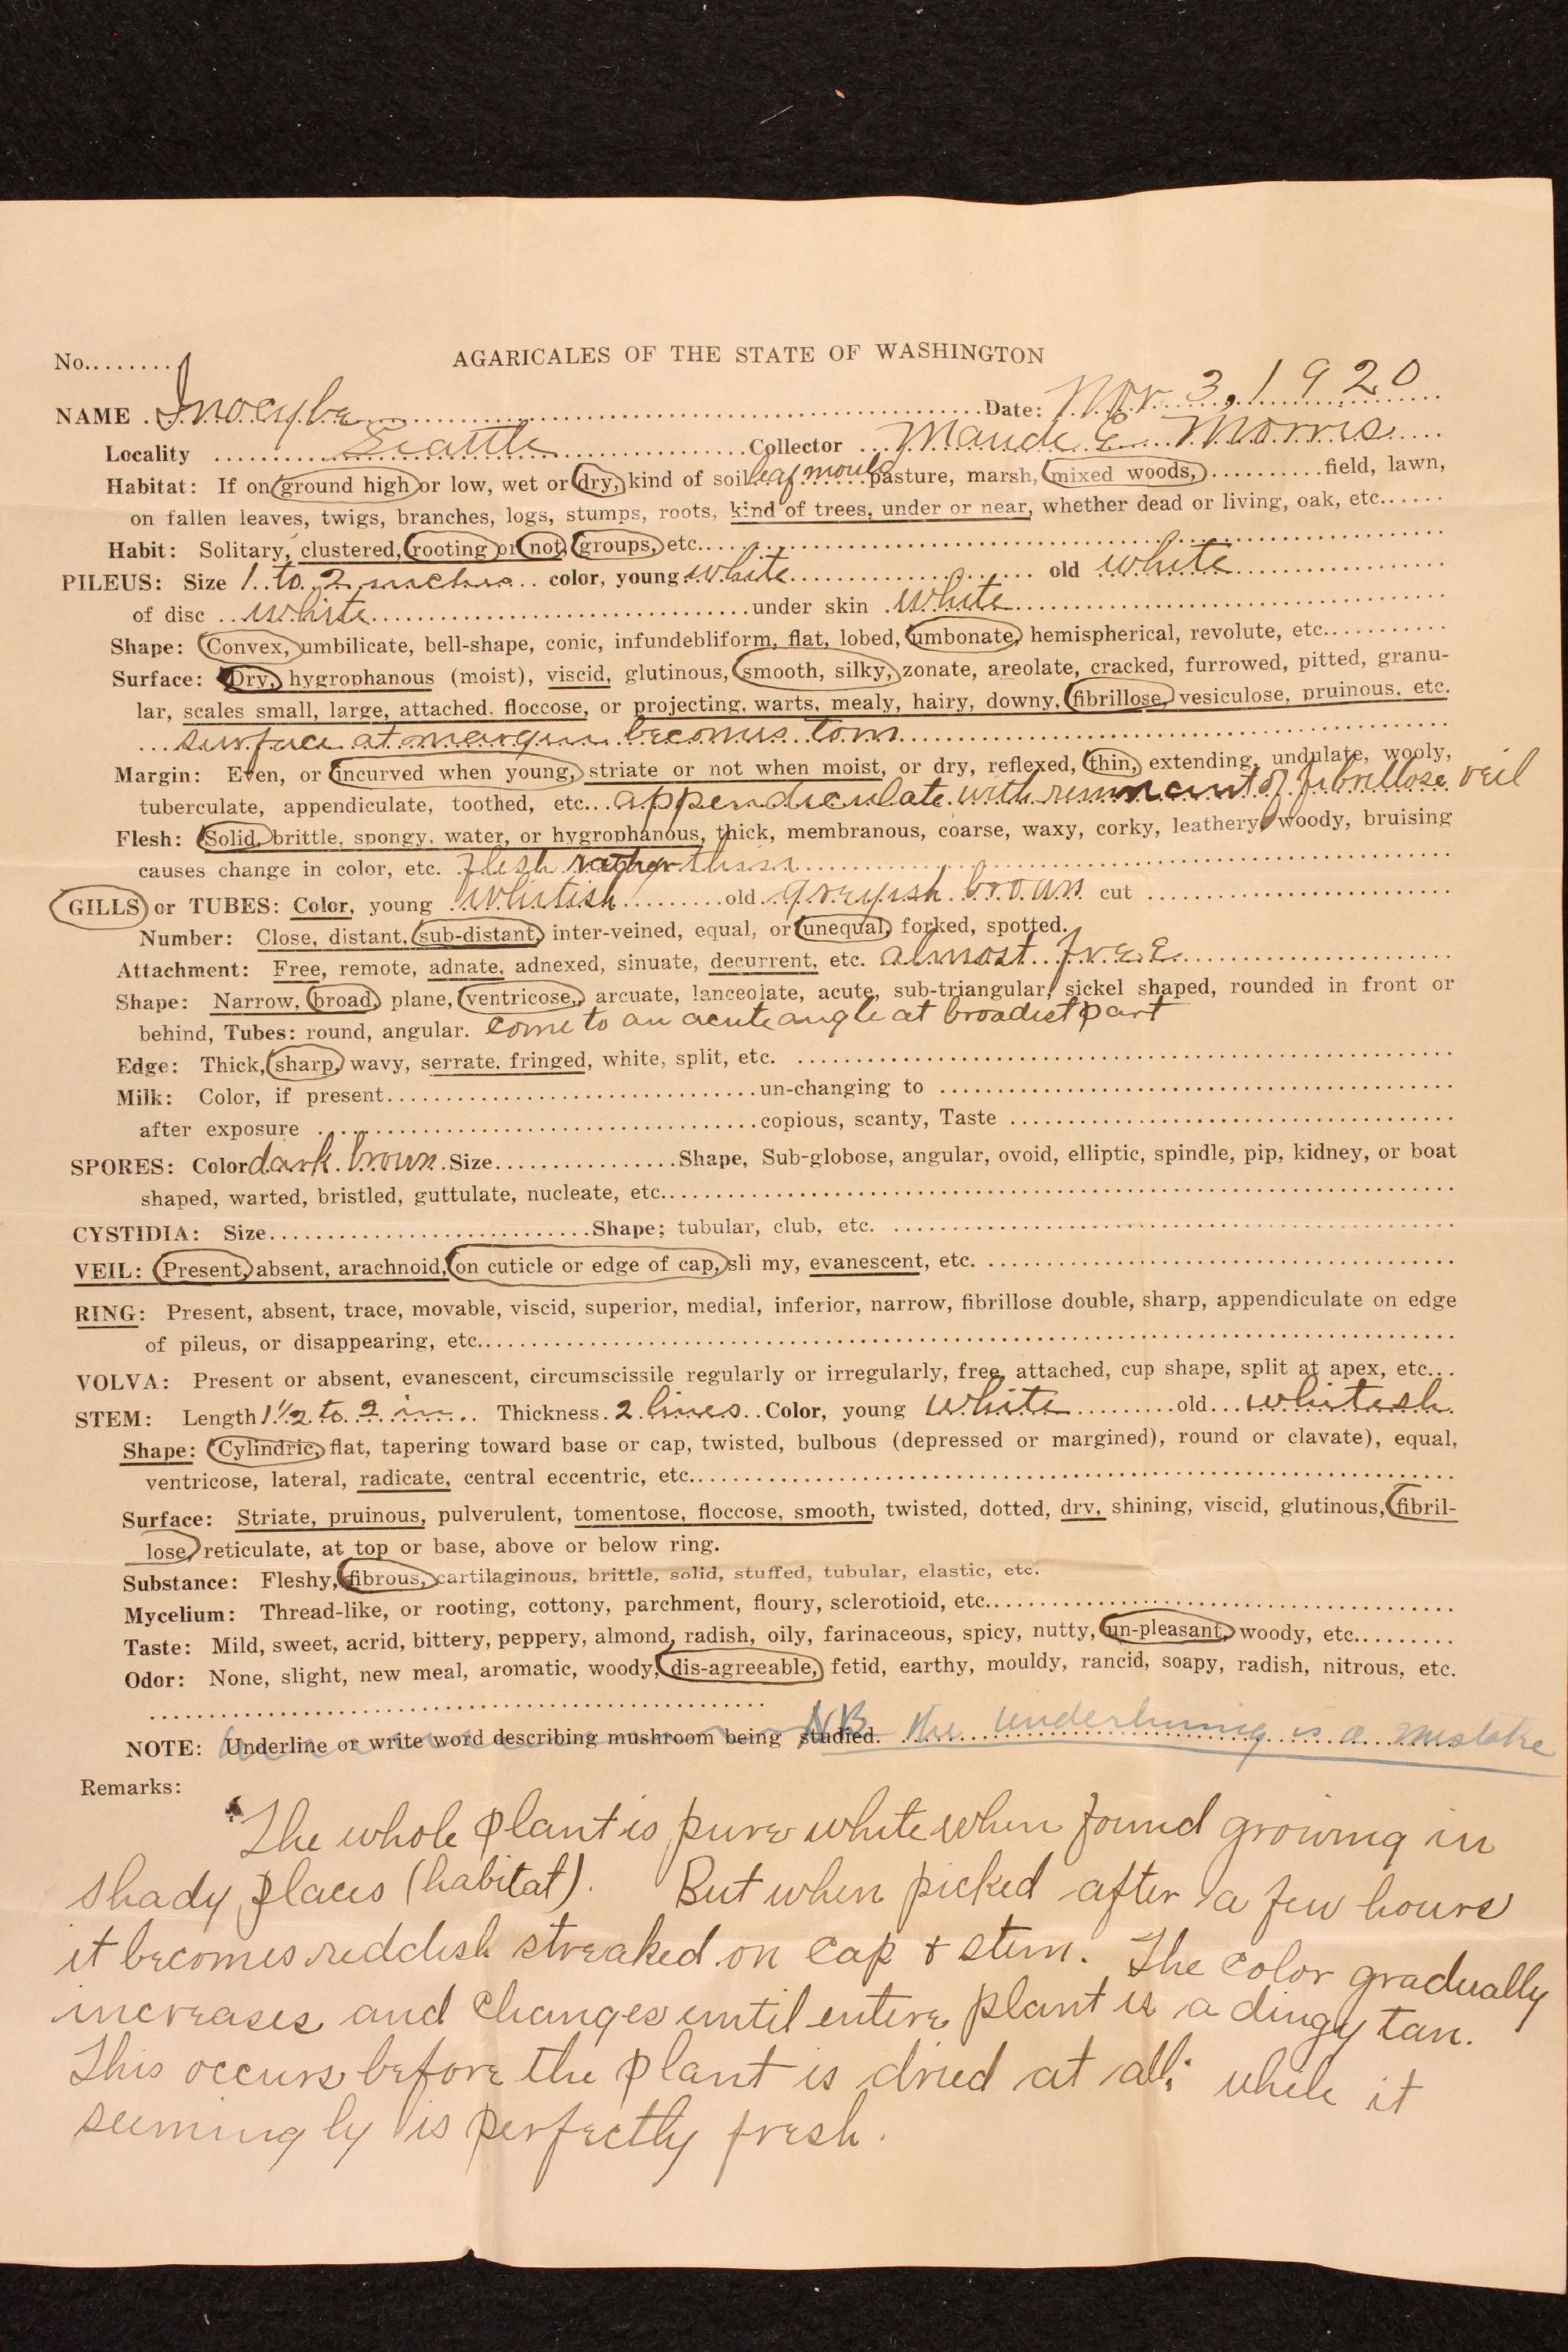 No.........
AGARICALES OF THE STATE OF WASHINGTON
NAME Inocybe Date: Nov 3, 1920
Locality Seattle Collector Maude E. Morris
Habitat: If on ground high or low, wet or dry, kind of soil leaf mould pasture, marsh, mixed woods, .......... field, lawn,
on fallen leaves, twigs, branches, logs, stumps, roots, kind of trees, under or near, whether dead or living, oak, etc......
Habit: Solitary, clustered, rooting or not, groups, etc.
PILEUS: Size 1 to 2 inches color, young white old white
of disc white under skin white
Shape: Convex, umbilicate, bell-shape, conic, infundebliform, flat, lobed, umbonate, hemispherical, revolute, etc...........
Surface: Dry, hygrophanous (moist), viscid, glutinous, smooth, silky, zonate, areolate, cracked, furrowed, pitted, granu-
lar, scales small, large, attached. floccose, or projecting. warts, mealy, hairy, downy, fibrillose, vesiculose, pruinous, etc.
surface at margin becomes torn
Margin: Even, or incurved when young, striate or not when moist, or dry, reflexed, thin, extending, undulate, wooly,
tuberculate, appendiculate, toothed, etc... appendiculate with remnant of fibrillose veil
Flesh: Solid, brittle, spongy, water, or hygrophanous, thick, membranous, coarse, waxy, corky, leathery, woody, bruising
causes change in color, etc. flesh rather thin
GILLS or TUBES: Color, young whitish old greyish brown cut
Number: Close, distant, sub-distant, inter-veined, equal, or unequal, forked, spotted.
Attachment: Free, remote, adnate, adnexed, sinuate, decurrent, etc. almost free
Shape: Narrow, broad, plane, ventricose, arcuate, lanceolate, acute, sub-triangular, sickel shaped, rounded in front or
behind, Tubes: round, angular. come to an acute angle at broadest part
Edge: Thick, sharp, wavy, serrate. fringed, white, split, etc.
Milk: Color, if present un-changing to
after exposure copious, scanty, Taste
SPORES: Color dark brown. Size Shape, Sub-globose, angular, ovoid, elliptic, spindle, pip, kidney, or boat
shaped, warted, bristled, guttulate, nucleate, etc.
CYSTIDIA: Size Shape; tubular, club, etc.
VEIL: Present, absent, arachnoid, on cuticle or edge of cap, sli my, evanescent, etc.
RING: Present, absent, trace, movable, viscid, superior, medial, inferior, narrow, fibrillose double, sharp, appendiculate on edge
of pileus, or disappearing, etc.
VOLVA: Present or absent, evanescent, circumscissile regularly or irregularly, free, attached, cup shape, split at apex, etc...
STEM: Length 1 1/2 to 2 in Thickness 2 lines Color, young white old whitish
Shape: Cylindric, flat, tapering toward base or cap, twisted, bulbous (depressed or margined), round or clavate), equal,
ventricose, lateral, radicate, central eccentric, etc.
Surface: Striate, pruinous, pulverulent, tomentose, floccose, smooth, twisted, dotted, dry, shining, viscid, glutinous, fibril-
lose, reticulate, at top or base, above or below ring.
Substance: Fleshy, fibrous, cartilaginous, brittle, solid, stuffed, tubular, elastic, etc.
Mycelium: Thread-like, or rooting, cottony, parchment, floury, sclerotioid, etc.
Taste: Mild, sweet, acrid, bittery, peppery, almond, radish, oily, farinaceous, spicy, nutty, un-pleasant, woody, etc.........
Odor: None, slight, new meal, aromatic, woody, dis-agreeable, fetid, earthy, mouldy, rancid, soapy, radish, nitrous, etc.
NOTE: Underline or write word describing mushroom being studied. NB The underlining is a mistake
Remarks:
The whole plant is pure white when found growing in
shady places (habitat). But when picked after a few hours
it becomes reddish streaked on cap & stem. The color gradually
increases and changes until entire plant is a dingy tan.
This occurs before the plant is dried at all; while it
seemingly is perfectly fresh.